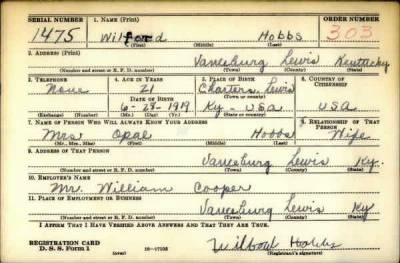 SERIAL NUMBER 1. NAME (Print) ORDER NUMBER
1475 Wilford Hobbs 303
(First) (Middle) (Last)
2. ADDRESS (Print)
Vanceburg Lewis Kentucky
(Number and street or R. F. D. number) (Town) (County) (State)
3. TELEPHONE 4. AGE IN YEARS 5. PLACE OF BIRTH 6. COUNTRY OF CITIZENSHIP
None 21 Charters, Lewis
DATE OF BIRTH (Town or county)
6-28-1919 Ky. - USA USA
(Exchange) (Number) (Mo.) (Day) (Yr.) (State or country)
7. NAME OF PERSON WHO WILL ALWAYS KNOW YOUR ADDRESS 8. RELATIONSHIP OF THAT PERSON
Mrs Opal Hobbs Wife
(Mr., Mrs., Miss) (First) (Middle) (Last)
9. ADDRESS OF THAT PERSON
Vanceburg Lewis Ky.
(Number and street or R. F. D. number) (Town) (County) (State)
10. EMPLOYER'S NAME
Mr. William Cooper
11. PLACE OF EMPLOYMENT OR BUSINESS
Vanceburg Lewis Ky
(Number and street or R. F. D. number) (Town) (County) (State)
I AFFIRM THAT I HAVE VERIFIED ABOVE ANSWERS AND THAT THEY ARE TRUE.
REGISTRATION CARD
D. S. S. Form 1 (over) Hobbs
(Registrant's signature)